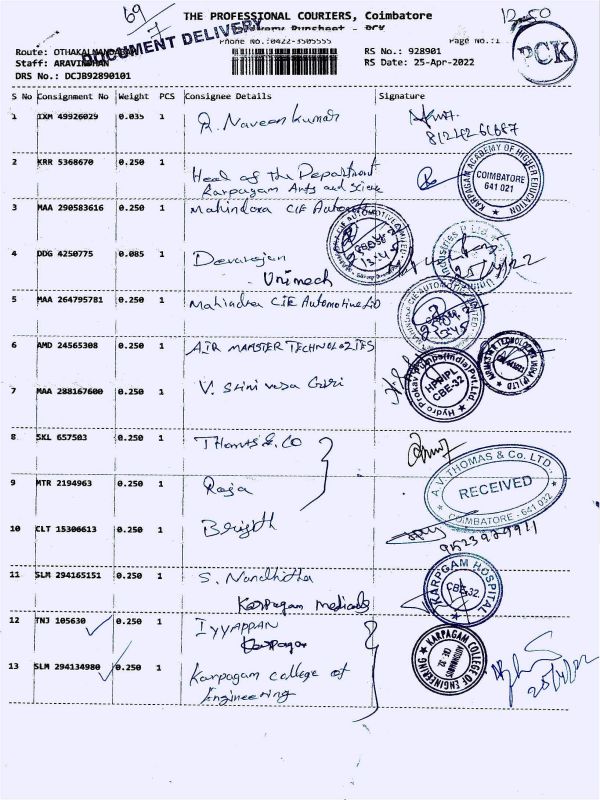 69/7
THE PROFESSIONAL COURIERS, Coimbatore
Delivery Runsheet - PCK
DOCUMENT DELIVERY
12-50
PCK
Phone No.:0422-3505555
Page No.:1
Route: OTHAKALMANDAPAM
RS No.: 928901
Staff: ARAVINDHAN
RS Date: 25-Apr-2022
DRS No.: DCJB92890101
S No Consignment No Weight PCS Consignee Details Signature
1 IXM 49926029 0.035 1 R. Naveen kumar
2 KRR 5368670 0.250 1 Head of the Department
Karpagam Arts and
KARPAGAM ACADEMY OF HIGHER EDUCATION
COIMBATORE
641 021
3 MAA 290583616 0.250 1 Mahindra CIE
4 DDG 4250775 0.085 1 Devarajan
Unimech
25/4/22
5 MAA 264795781 0.250 1 Mahindra CIE Automotive Ltd
6 AMD 24565308 0.250 1 AIR MAMSTER TECHNOLOZIES
Hydro Prokav Pumps(India)Pvt.Ltd.
HPPIPL
CBE-32
7 MAA 288167600 0.250 1 V. Srinivasa Giri
8 SKL 657503 0.250 1 Thomas & Co
9 MTR 2194963 0.250 1 Raja
A.V. THOMAS & Co. LTD.,
RECEIVED
COIMBATORE - 641 032
10 CLT 15306613 0.250 1 Brijith
11 SLM 294165151 0.250 1 S. Nandhitha
Karpagam medicals
KARPAGAM HOSPITAL
CBE-32
12 TNJ 105630 0.250 1 IYYAPPAN
Karpagam
13 SLM 294134980 0.250 1 Karpagam college of
Engineering
KARPAGAM COLLEGE OF ENGINEERING
25/4/22